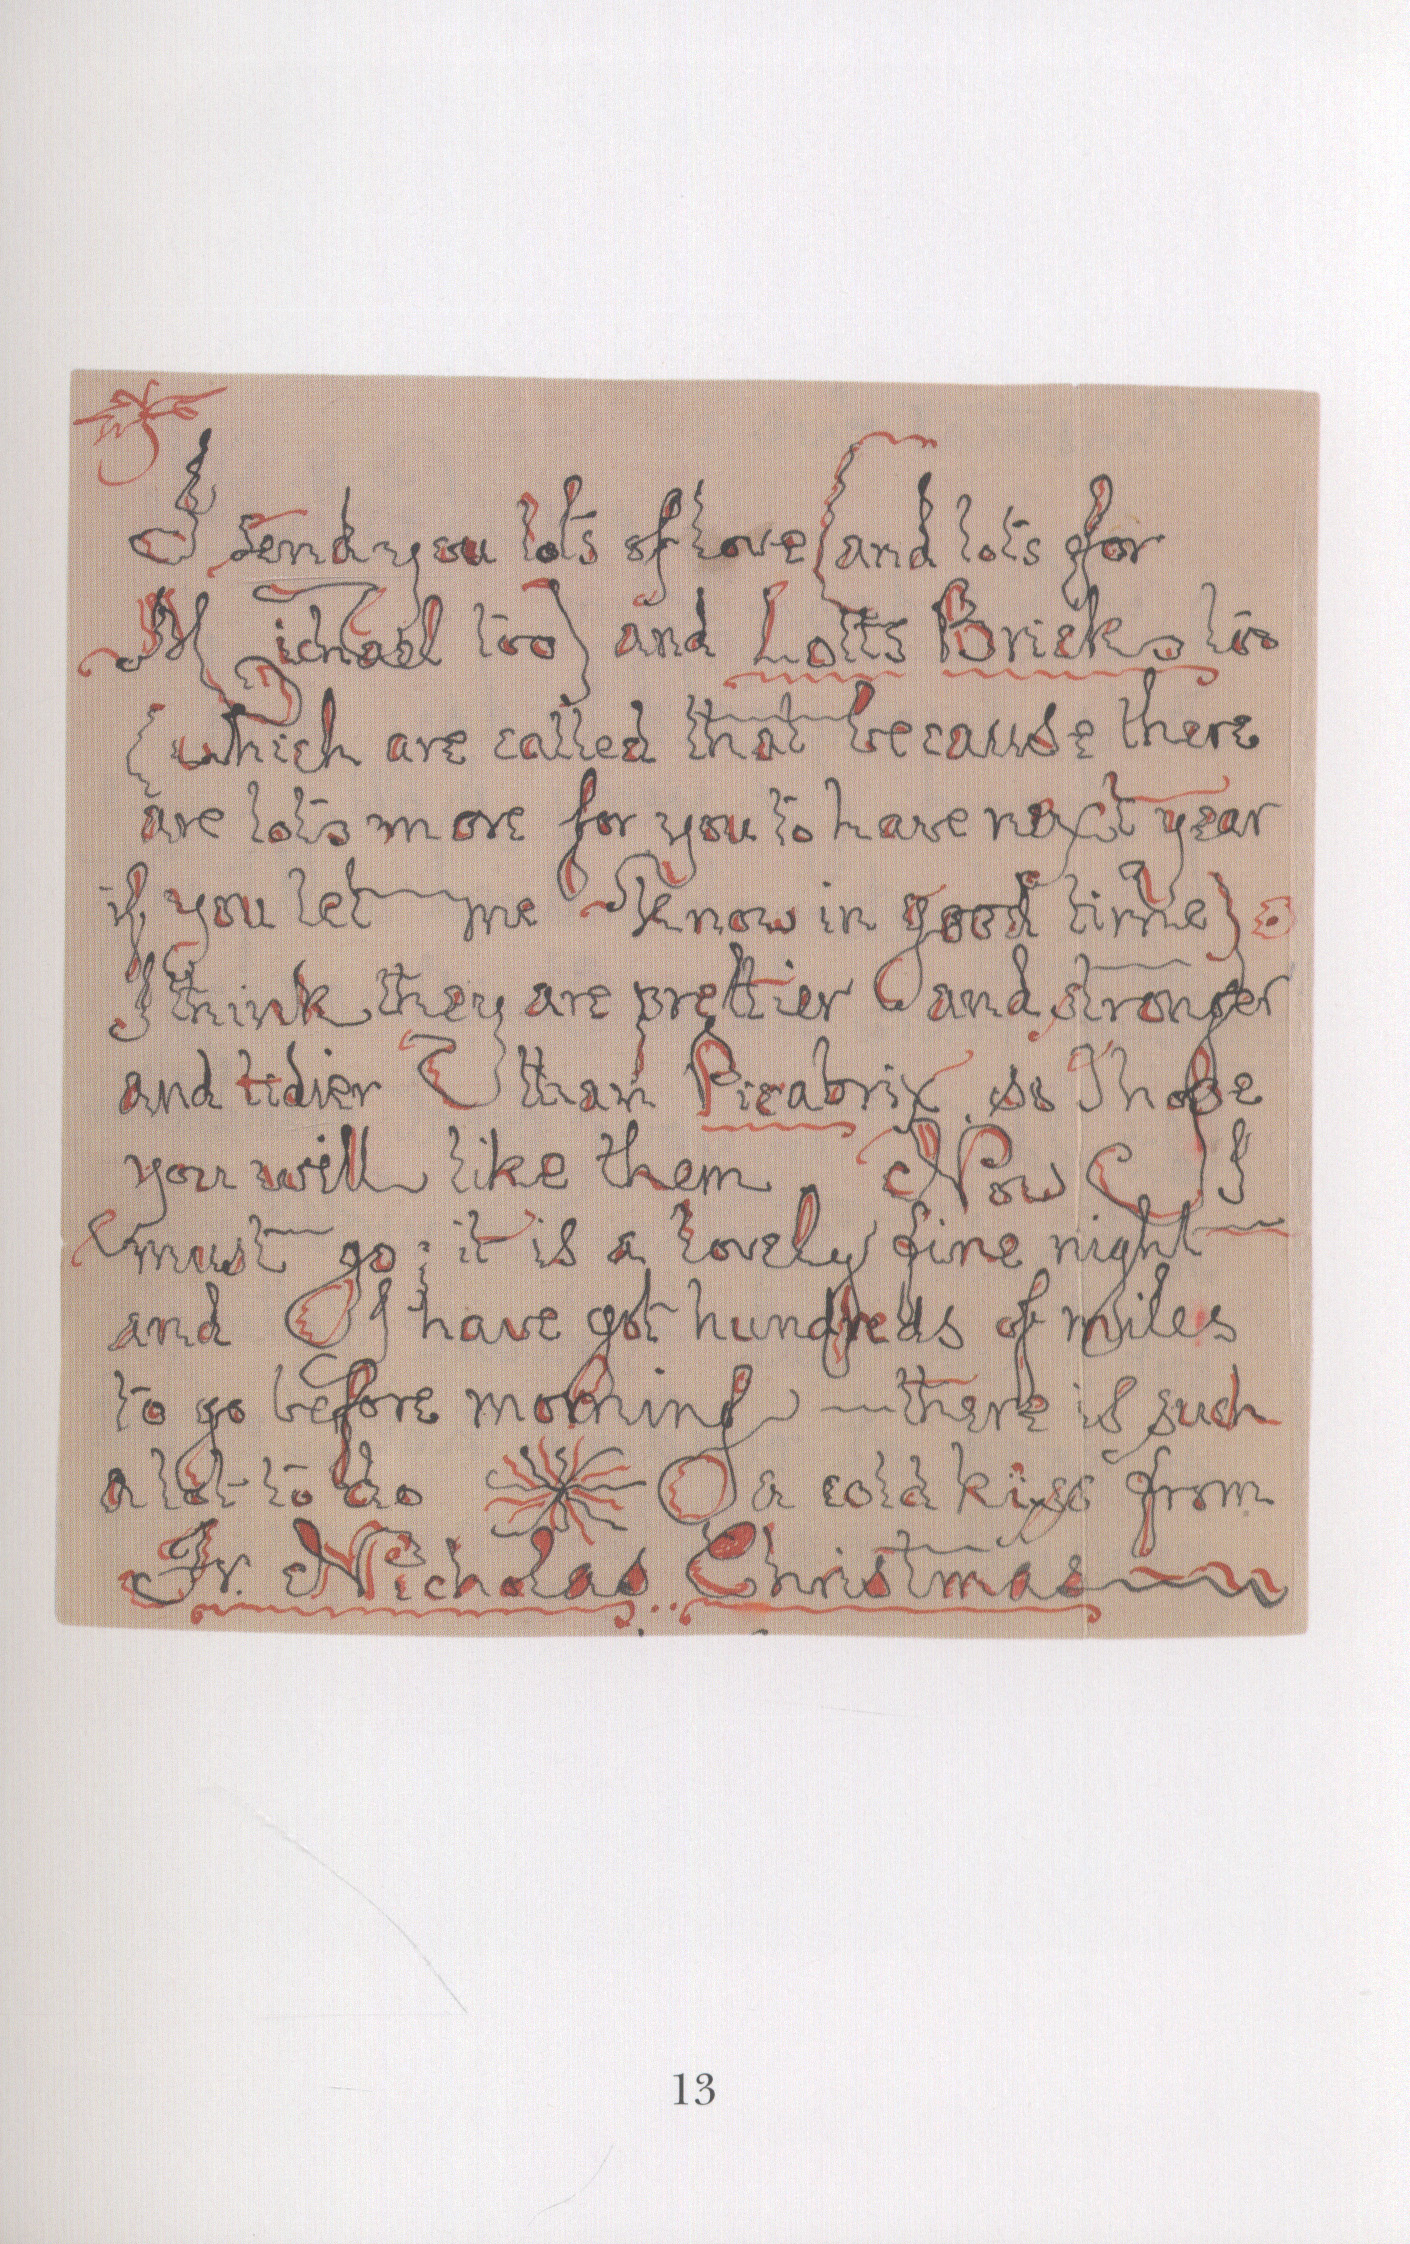 I send you lots of love (and lots for
Michael too) and Lotts Bricks too
(which are called that because there
are lots more for you to have next year
if you let me know in good time).
I think they are prettier and stronger
and tidier than Picabrix. So I hope
you will like them. Now I
must go; it is a lovely fine night
and I have got hundreds of miles
to go before morning — there is such
a lot to do. A cold kiss from
Fr. Nicholas Christmas
13